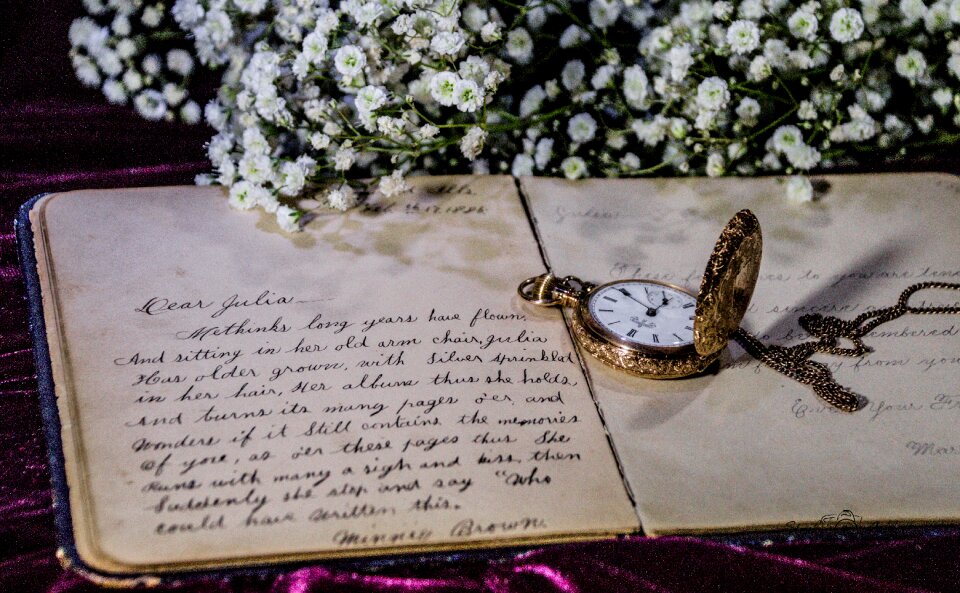 17, 1886
Dear Julia —
Methinks long years have flown,
And sitting in her old arm chair, Julia
Has older grown, with Silver sprinkled
in her hair, Her album thus she holds,
And turns its many pages o'er, and
Wonders if it Still contains the memories
Of yore, as o'er these pages thus She
Runs with many a sigh and kiss, then
Suddenly she stop and say "Who
could have written this.
Minnie Brown
to you are
sincere
remembered
from you
Your